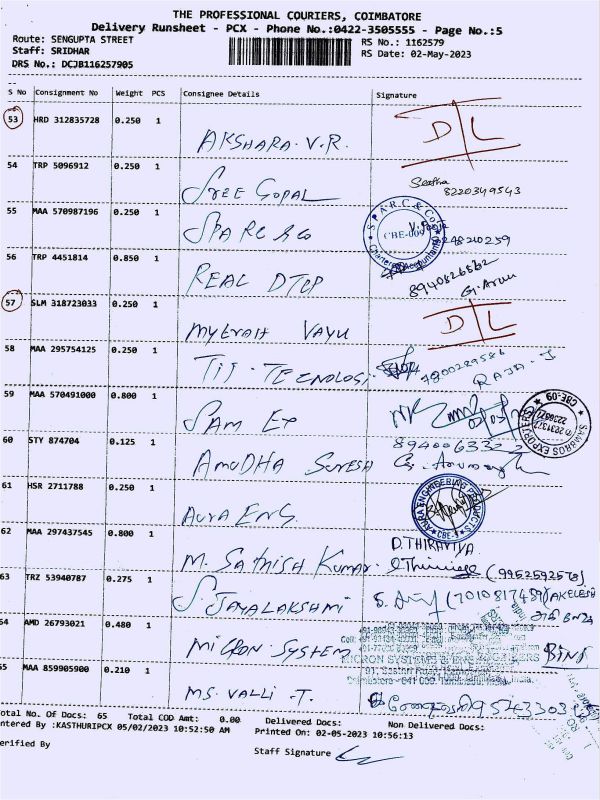 THE PROFESSIONAL COURIERS, COIMBATORE
Delivery Runsheet - PCX - Phone No.:0422-3505555 - Page No.:5
Route: SENGUPTA STREET RS No.: 1162579
Staff: SRIDHAR RS Date: 02-May-2023
DRS No.: DCJB116257905
S No Consignment No Weight PCS Consignee Details Signature
53 HRD 312835728 0.250 1
AKSHARA. V.R. D/L
54 TRP 5096912 0.250 1
SREE GOPAL 8220349543
55 MAA 570987196 0.250 1
SPARC & Co SPARC & Co. CBE-009 Chartered Accountants
56 TRP 4451814 0.850 1
REAL DTCP G. Arun
57 SLM 318723033 0.250 1
MYTRAH VAYU D/L
58 MAA 295754125 0.250 1
TIT. TECNOLOGI. RAJA. I
59 MAA 570491000 0.800 1
SAM EX SAMBROS EXPORTERS CBE-09
60 STY 874704 0.125 1
AMUDHA SURESH
61 HSR 2711788 0.250 1
AURA ENG. AURA ENGINEERING PRODUCTS CBE-9
62 MAA 297437545 0.800 1 D. THIRAVIYA
M. SATHISH KUMAR.
63 TRZ 53940787 0.275 1
S. JAYALAKSHMI (7010817489) AKELESH
64 AMD 26793021 0.480 1
MICRON SYSTEM MICRON SYSTEMS
65 MAA 859905900 0.210 1
MS. VALLI. T.
Total No. Of Docs: 65 Total COD Amt: 0.00 Delivered Docs: Non Delivered Docs:
Entered By :KASTHURIPCX 05/02/2023 10:52:50 AM Printed On: 02-05-2023 10:56:13
Verified By Staff Signature